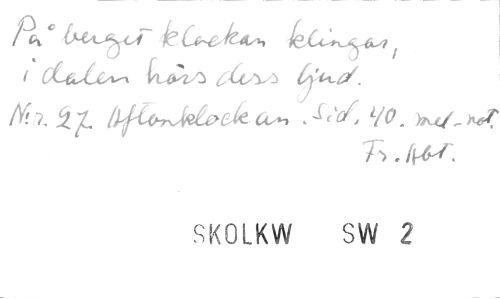 På berget klockan klingar,
i dalen hörs dess ljud.
N:r. 27. Aftonklockan. Sid. 40. mel-not.
Fr. Abt.
SKOLKW SW 2